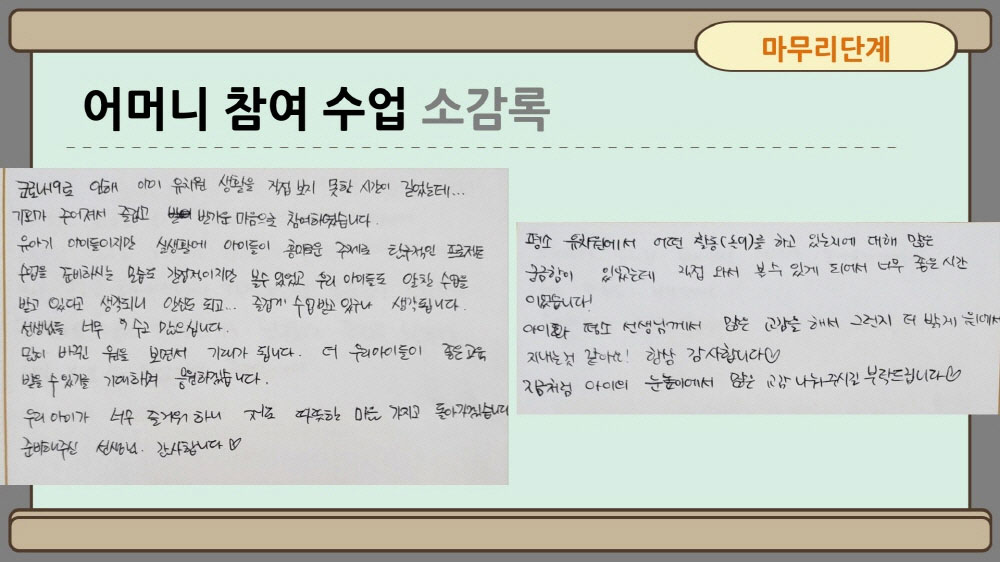 마무리단계
어머니 참여 수업 소감록
코로나19로 인해 아이 유치원 생활을 직접 보지 못한 시간이 길었는데...
기회가 주어져서 즐겁고 반가운 마음으로 참여하였습니다.
유아기 아이들이지만 실생활에 아이들이 흥미로운 주제로 탐구적인 프로젝트
수업을 준비하시는 모습도 간접적이지만 볼수 있었고 우리 아이들도 알찬 수업을
받고 있다고 생각되니 안심도 되고... 즐겁게 수업받고 있구나 생각됩니다.
선생님들 너무 수고 많으십니다.
많이 바뀐 원을 보면서 기대가 됩니다. 더 우리아이들이 좋은교육
받을 수 있기를 기대하며 응원하겠습니다.
우리 아이가 너무 즐거워 하니 저도 따뜻한 마음 가지고 돌아가겠습니다
준비해주신 선생님. 감사합니다♡
평소 유치원에서 어떤 활동(놀이)를 하고 있는지에 대해 많은
궁금함이 있었는데 직접 와서 볼수 있게 되어서 너무 좋은시간
이었습니다!
아이와 평소 선생님께서 많은 교감을 해서 그런지 더 밝게 원에서
지내는것 같아요! 항상 감사합니다♡
지금처럼 아이의 눈높이에서 많은 교감 나눠주시길 부탁드립니다♡